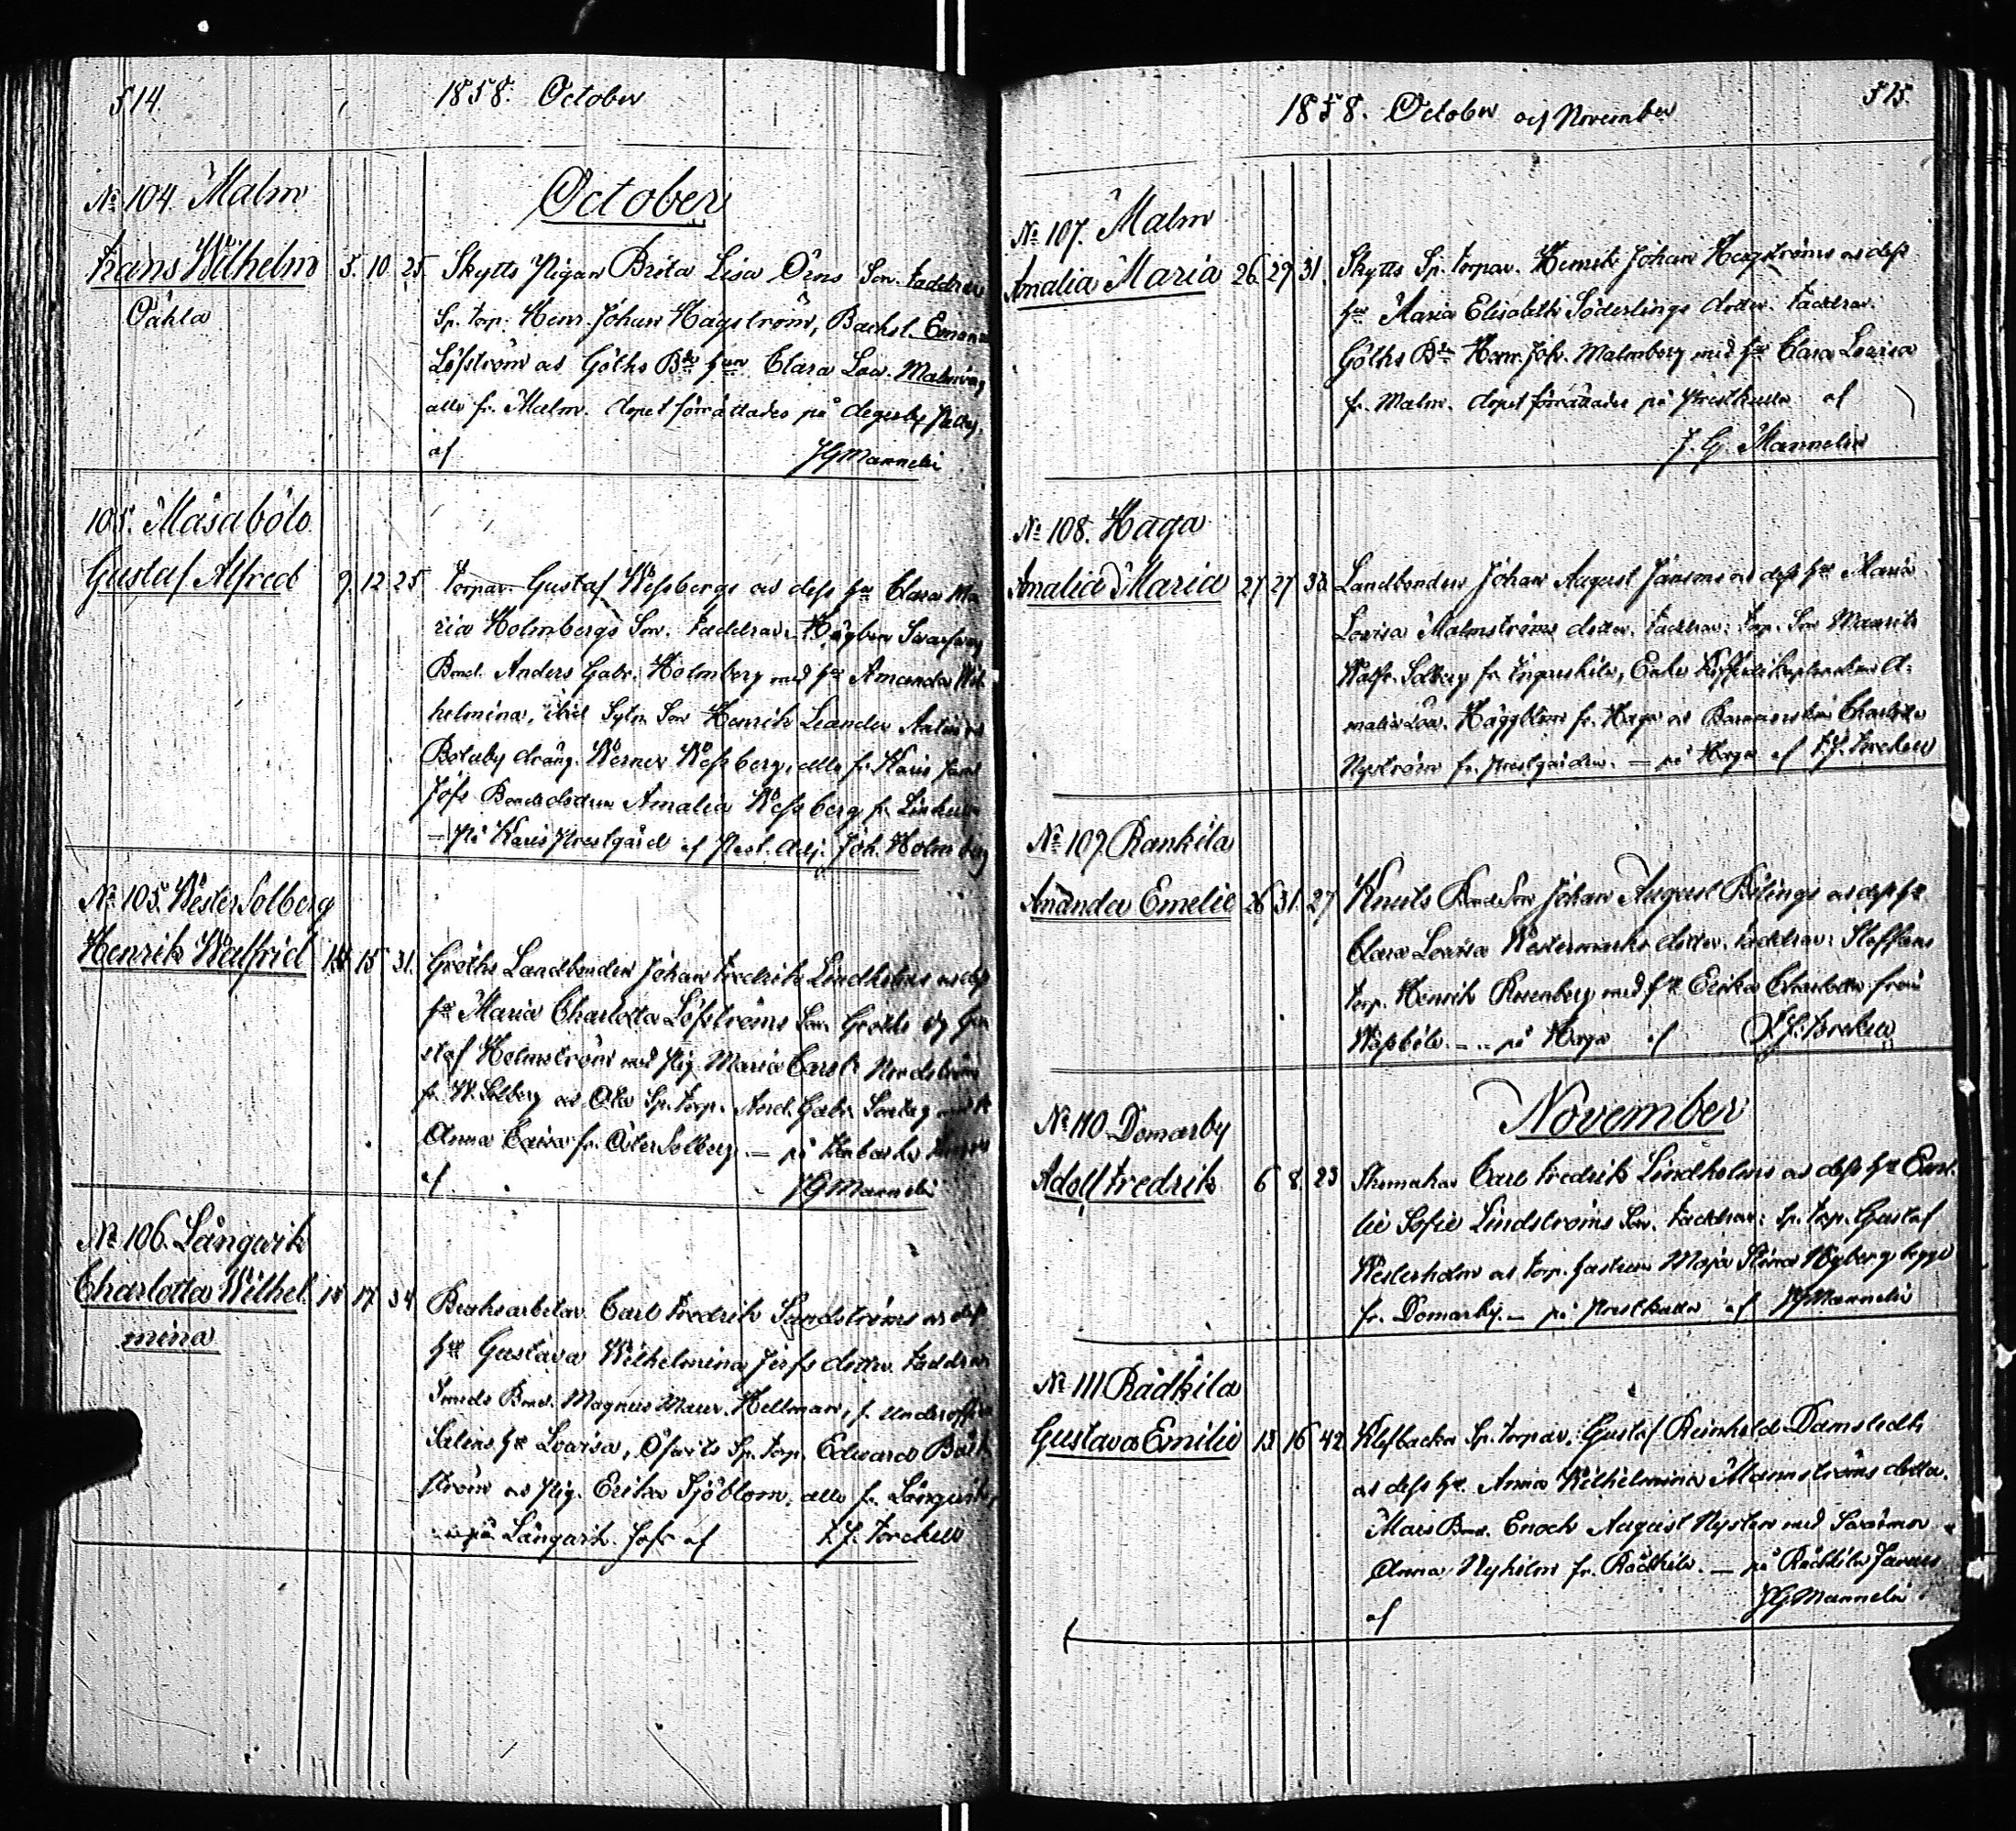 514.
1858. October
October
No 104. Malm
Frans Wilhelm 5. 10. 25. Skytts Pigan Brita Lisa Örns Son. Faddrar
Oähta
Sp. torp. Henr. Johan Hagström, Backst.
Löfström och Göths Bde hru Clara Lov. Malmberg
alla fr. Malm. dopet förrättades på Degerby
af JGMannelin
105. Måsaböle
Gustaf Alfred 9. 12. 25 Torpar. Gustaf Wessbergs och dess hu Clara Ma
ria Holmbergs Son. Faddrar:
Bond. Anders Gabr. Holmberg med hu Amanda Wil
helmina, Sytn. Son Henrik Leander
dräng. Werner Wessberg, alla fr. Karis samt
Amalia Wessberg fr.
— På Karis Prestgård af Past. Adj. Joh. Holmberg
No 105. Wester Solberg
Henrik Walfrid 14 15 31. Gröths Landbonden Johan Fredrik Lindholms och dess
hu Maria Charlotta Löfströms Son. Gröths Gu
staf Holmström med Pig. Maria Carol. Nordström
fr. W. Solberg och Sp. torp. And. Gabr.
Anna Caisa fr. Öster Solberg. — på
af JGMannelin
No 106. Långwik
Charlotta Wilhel 15 17 34 Bruksarbetar. Carl Fredrik Sundströms och dess
mina
hu Gustava Wilhelmina Jerfs dotter. Faddrar
Smeds Bond. Magnus Maur. Hellman, f. Underoffic.
hu Lovisa, Sp. torp. Edward
ström och Pig. Erika Sjöblom, alla fr. Långwik,
på Långwik af F. J. Forchell
515.
1858. October och November
No 107. Malm
Amalia Maria 26. 29. 31. Skytts Sp. torpar. Henrik Johan Hagströms och dess
hu Maria Elisabeth Söderlings dotter. Faddrar.
Göths Bde Henr. Joh. Malmberg med hu Clara Lovisa
fr. Malm. dopet förrättades på af
J. G. Mannelin
No 108. Haga
Amalia Maria 27 27 33. Landbonden Johan August Jansons och dess hu Maria
Lovisa Malmströms dotter. Faddrar: Torp. Son Maurits
Walfr. Solberg fr. Ingarskila, Enke A-
malia Lov. Häggblom fr. Haga och Barnmorskan Charlotta
Nyström fr. Prestgården. — på Haga af F. J. Forchell
No 109 Rankila
Amanda Emelie 26 31. 27 Knuts Bonde Son Johan August Kilings och dess hu
Clara Lovisa Westermarks dotter. Faddrar: Staffans
torp. Henrik Rosenberg med hu Erika Charlotta från
Wassböle. — på Haga af F. J. Forchell
November
No 110. Domarby
Adolf Fredrik 6 8. 23 Skomakar Carl Fredrik Lindholms och dess hu Emi-
lie Sofie Lindströms Son. Faddrar: Sp. torp. Gustaf
Westerholm och torp. hustrun Maja Stina Nyberg begge
fr. Domarby. — på af JGMannelin
No 111 Rådkila
Gustava Emilie 13 16 42 Klefbacka Sp. torpar, Gustaf Reinhold Damstedts
och dess hu. Anna Wilhelmina Mannströms dotter.
Mars Bond. Enoch August Nysten med Svärmor
Anna Nyholm fr. Rådkila. — på Rådkila
af JGMannelin